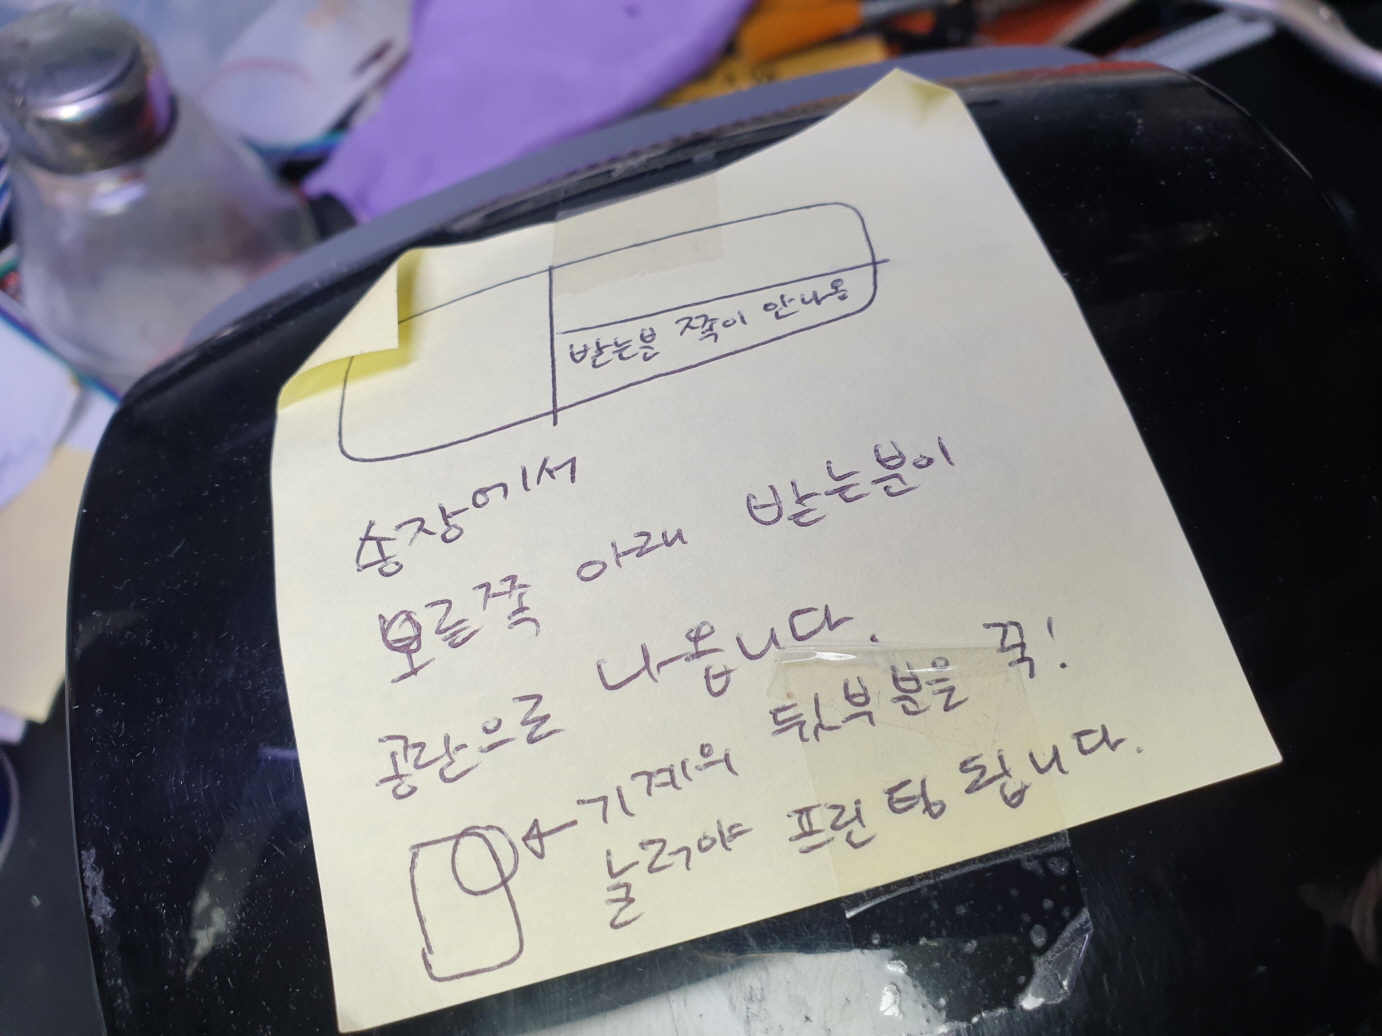 받는분 쪽이 안나옴
송장에서
오른쪽 아래 받는분이
공란으로 나옵니다.
기계의 뒷부분을 꾹!
눌러야 프린팅 됩니다.